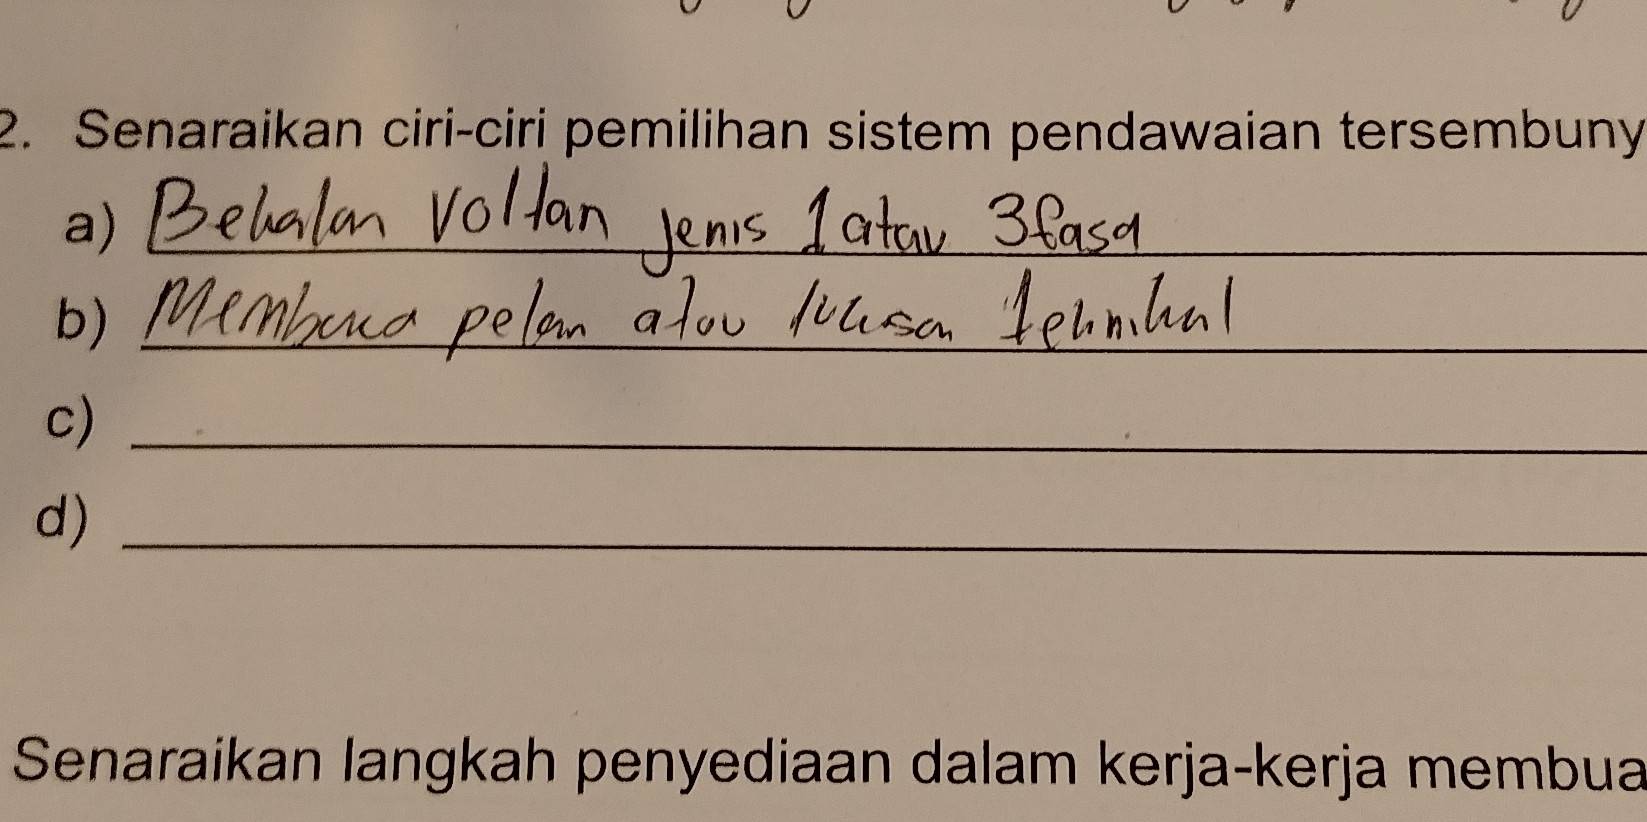 2. Senaraikan ciri-ciri pemilihan sistem pendawaian tersembuny
a) Bekalan voltan jenis 1 atau 3 fasa
b) Membaca pelan atau lukisan teknikal
c)
d)
Senaraikan langkah penyediaan dalam kerja-kerja membua